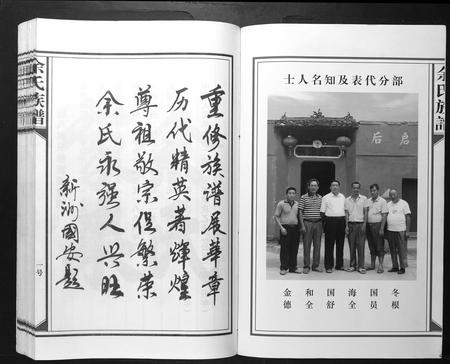 余氏族譜
部分代表及知名人士
启后
冬根
国员
海全
国舒
和全
金德
重修族譜展華章
历代精英著輝煌
尊祖敬宗促繁荣
余氏永强人兴旺
新洲國安題
余氏族譜
一号